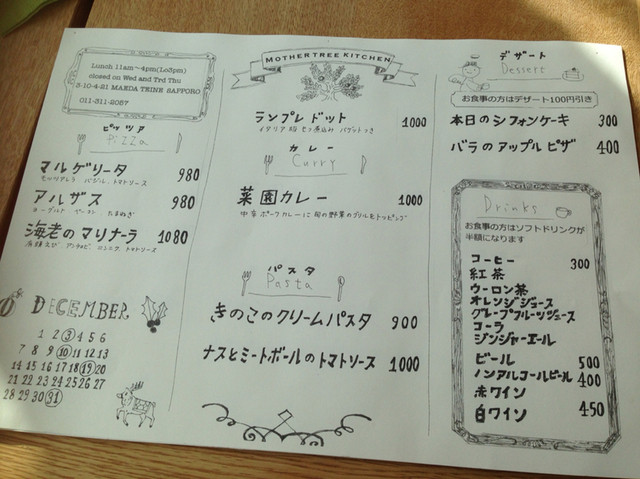 Lunch 11am～4pm(Lo3pm)
closed on Wed and Trd Thu
3-10-4-21 MAEDA TEINE SAPPORO
011-311-2067
ピッツア
Pizza
マルゲリータ 980
モッツアレラ バジル、トマトソース
アルザス 980
ヨーグルト ベーコン たまねぎ
海老のマリナーラ 1080
アンチョビ、ニンニク、トマトソース
DECEMBER
1 2 3 4 5 6
7 8 9 10 11 12 13
14 15 16 17 18 19 20
21 22 23 24 25 26 27
28 29 30 31
MOTHER TREE KITCHEN
ランプレドット 1000
イタリア風モツ煮込み バゲットつき
カレー
Curry
菜園カレー 1000
中辛ポークカレーに旬の野菜のグリルをトッピング
パスタ
Pasta
きのこのクリームパスタ 900
ナスとミートボールのトマトソース 1000
デザート
Dessert
お食事の方はデザート100円引き
本日のシフォンケーキ 300
バラのアップルピザ 400
Drinks
お食事の方はソフトドリンクが
半額になります
コーヒー 300
紅茶
ウーロン茶
オレンジジュース
グレープフルーツジュース
コーラ
ジンジャーエール
ビール 500
ノンアルコールビール 400
赤ワイン
白ワイン 450